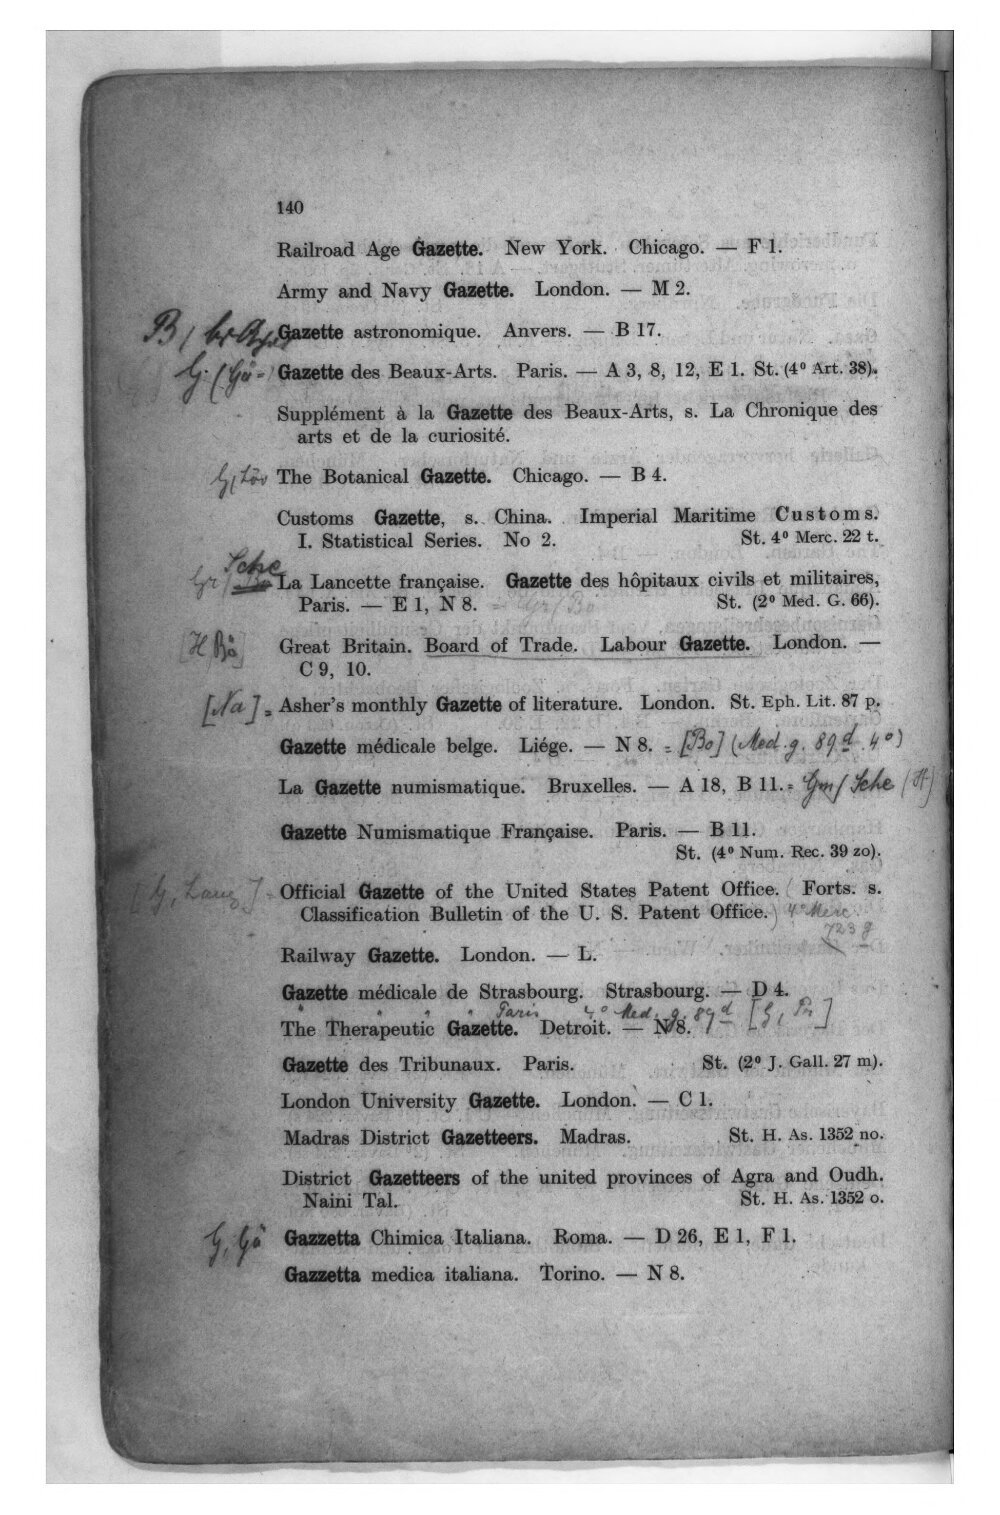 140
Railroad Age Gazette. New York. Chicago. — F 1.
Army and Navy Gazette. London. — M 2.
B / Gazette astronomique. Anvers. — B 17.
Gazette des Beaux-Arts. Paris. — A 3, 8, 12, E 1. St. (4⁰ Art. 38).
Supplément à la Gazette des Beaux-Arts, s. La Chronique des
arts et de la curiosité.
The Botanical Gazette. Chicago. — B 4.
Customs Gazette, s. China. Imperial Maritime Customs.
I. Statistical Series. No 2. St. 4⁰ Merc. 22 t.
Sche
La Lancette française. Gazette des hôpitaux civils et militaires,
Paris. — E 1, N 8. St. (2⁰ Med. G. 66).
[H Bö] Great Britain. Board of Trade. Labour Gazette. London. —
C 9, 10.
[Na] = Asher's monthly Gazette of literature. London. St. Eph. Lit. 87 p.
Gazette médicale belge. Liége. — N 8. = [Bo] (Med. g. 89 d 4⁰)
La Gazette numismatique. Bruxelles. — A 18, B 11. = Gm / Sche (H)
Gazette Numismatique Française. Paris. — B 11.
St. (4⁰ Num. Rec. 39 zo).
Official Gazette of the United States Patent Office. ( Forts. s.
Classification Bulletin of the U. S. Patent Office. ) 4⁰ Merc.
723 g
Railway Gazette. London. — L.
Gazette médicale de Strasbourg. Strasbourg. — D 4.
" " " " Paris 4⁰ Med. g. 89 d
The Therapeutic Gazette. Detroit. — N 8.
Gazette des Tribunaux. Paris. St. (2⁰ J. Gall. 27 m).
London University Gazette. London. — C 1.
Madras District Gazetteers. Madras. St. H. As. 1352 no.
District Gazetteers of the united provinces of Agra and Oudh.
Naini Tal. St. H. As. 1352 o.
G, Gö Gazzetta Chimica Italiana. Roma. — D 26, E 1, F 1.
Gazzetta medica italiana. Torino. — N 8.